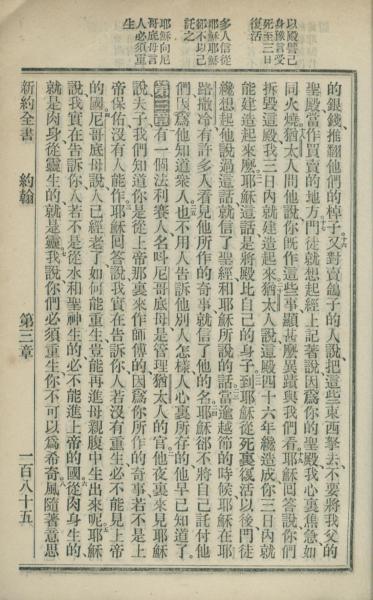 以殿譬己
身豫言受
死至三日
復活
多人信從
耶穌耶穌
卻不以己
託之
耶穌向尼
哥底母言
人必須重
生
的銀錢推翻他們的棹子又對賣鴿子的人說把這些東西拏去不要將我父的
聖殿當作買賣的地方門徒就想起經上記著說因爲你的聖殿我心裏焦急如
同火燒猶太人問他說你旣作這些事顯甚麼異蹟與我們看耶穌回答說你們
拆毀這殿我三日內就建造起來猶太人說這殿四十六年纔造成你三日內就
能建造起來麼耶穌這話是將殿比自己的身子到耶穌從死裏復活以後門徒
纔想起他說過這話就信了聖經和耶穌所說的話當逾越節的時候耶穌在耶
路撒冷有許多人看見他所作的奇事就信了他的名耶穌卻不將自己託付他
們因爲他知道衆人也不用人告訴他別人怎樣人心裏所存的他早已知道了
第三章有一個法利賽人名叫尼哥底母是管理猶太人的官他夜裏來見耶穌
說夫子我們知道你是從上帝那裏來作師傅的因爲你所作的奇事若不是上
帝保佑沒有人能作耶穌回答說我實在告訴你人若沒有重生必不能見上帝
的國尼哥底母說人已經老了如何能重生豈能再進母親腹中生出來呢耶穌
說我實在告訴你人若不是從水和聖神生的必不能進上帝的國從肉身生的
就是肉身從靈生的就是靈我說你們必須重生你不可以爲希奇風隨著意思
新約全書 約翰 第三章 一百八十五